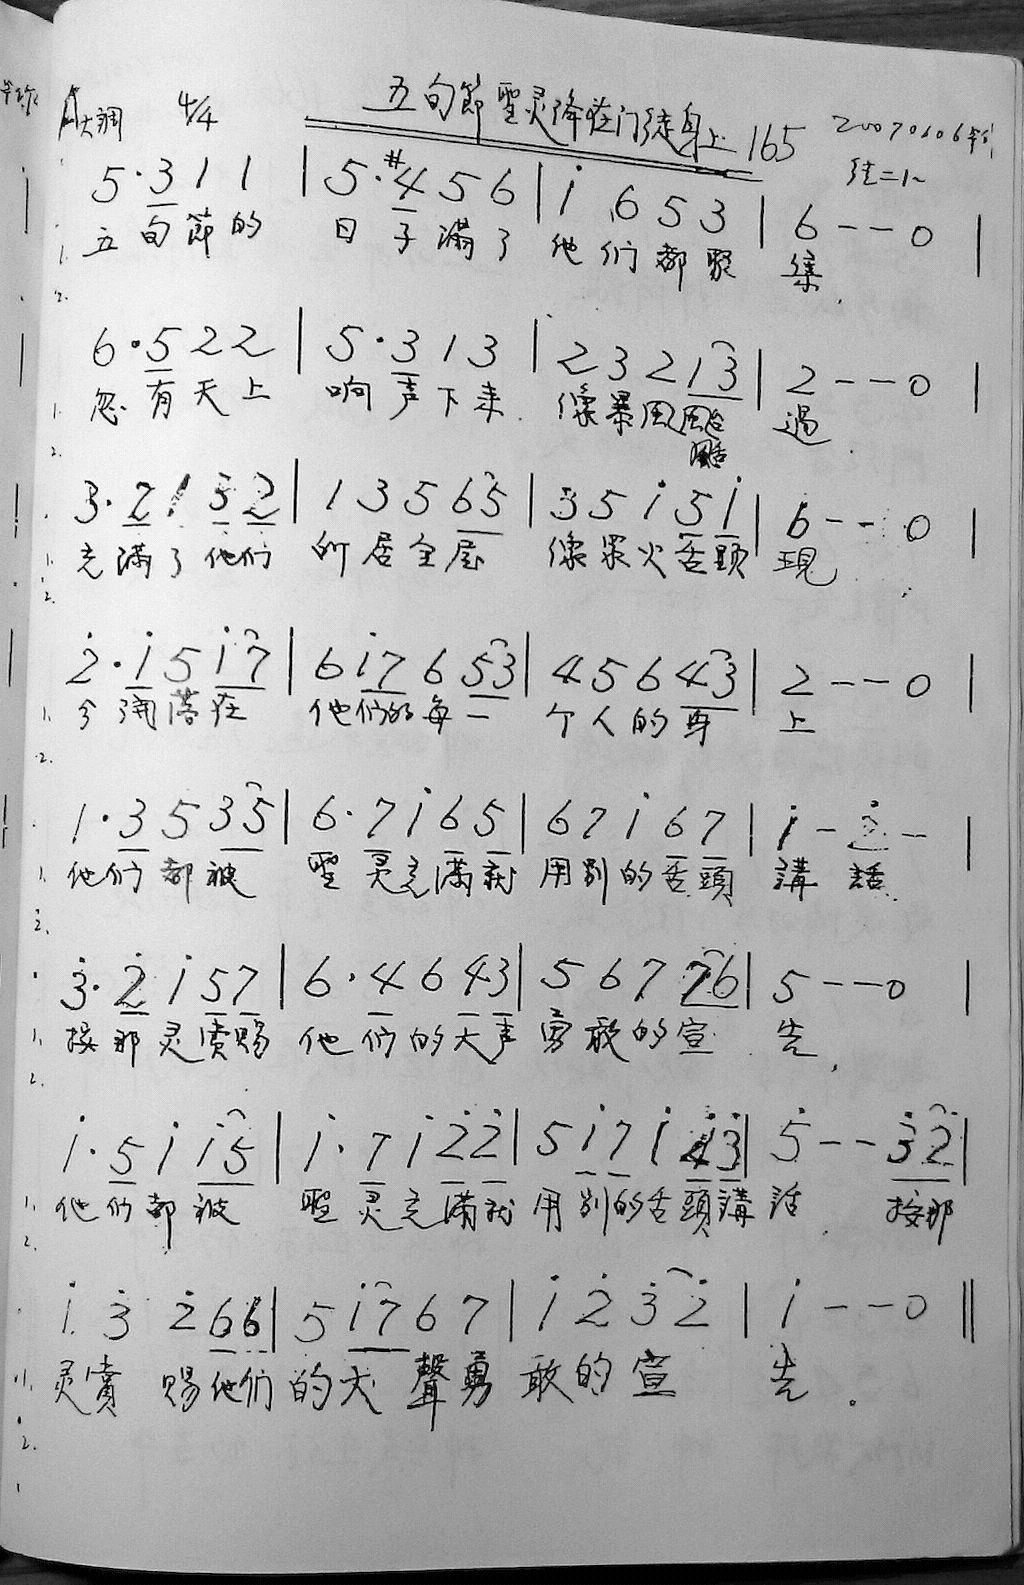 A大調 4/4 五旬節聖灵降在门徒身上 165 20070606
徒二1~
5·3 1 1 | 5·#4 5 6 | i 6 5 3 | 6 - - 0 |
1. 五旬節的 日子滿了 他们都聚 集
2.
6·5 2 2 | 5·3 1 3 | 2 3 2 1 3 | 2 - - 0 |
1. 忽有天上 响声下来 像暴風颱 過
2.
3·2 1 3 2 | 1 3 5 6 5 | 3 5 i 5 i | 6 - - 0 |
1. 充滿了他们 所居全屋 像眾火舌頭 現
2.
2̇·i 5 i 7 | 6 i 7 6 5 3 | 4 5 6 4 3 | 2 - - 0 |
1. 分 落在 他们的每一 个人的身 上
2.
1·3 5 3 5 | 6·7 i 6 5 | 6 7 i 6 7 | i - 2̇ - |
1. 他们都被 聖灵充滿就 用别的舌頭 講話
2.
3̇·2̇ i 5 7 | 6·4 6 4 3 | 5 6 7 7 6 | 5 - - 0 |
1. 按那灵賞賜 他们的大声 勇敢的宣 告
2.
i·5 i i 5 | i·7 i 2̇ 2̇ | 5 i 7 i 3̇ | 5̇ - - 3̇ 2̇ |
1. 他们都被 聖灵充滿就 用别的舌頭講 話 按那
2.
i 3̇ 2̇ 6 6 | 5 i 7 6 7 | i 2̇ 3̇ 2̇ | i - - 0 ‖
1. 灵賞 賜他们的大聲勇敢的宣 告。
2.